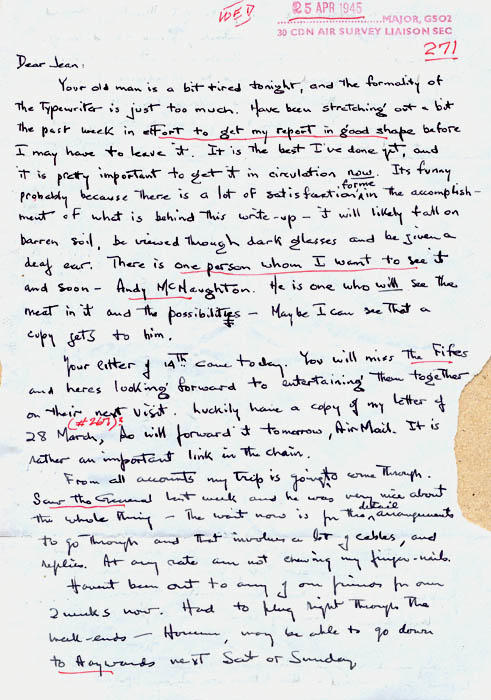 WED
25 APR 1945
MAJOR, GSO2
30 CDN AIR SURVEY LIAISON SEC
271
Dear Jean:
Your old man is a bit tired tonight, and the formality of
the typewriter is just too much. Have been stretching out a bit
the past week in effort to get my report in good shape before
I may have to leave it. It is the best I've done yet, and
it is pretty important to get it in circulation now. Its funny
probably because there is a lot of satisfaction for me in the accomplish-
ment of what is behind this write-up - it will likely fall on
barren soil, be viewed through dark glasses and be given a
deaf ear. There is one person whom I want to see it
and soon - Andy McNaughton. He is one who will see the
meat in it and the possibilities - Maybe I can see that a
copy gets to him.
Your letter of 14th came today. You will miss the Fifes
and heres looking forward to entertaining them together
on their next visit. Luckily have a copy of my letter of
(#267)
28 March, so will forward it tomorrow, Air Mail. It is
rather an important link in the chain.
From all accounts my trip is going to come through.
Saw the General last week and he was very nice about
the whole thing - The wait now is for the detail arrangements
to go through and that involves a lot of cables, and
replies. At any rate am not chewing my finger-nails.
Havent been out to any of our friends for over
2 weeks now. Had to plug right through the
week-ends - However, may be able to go down
to Haywards next Sat or Sunday